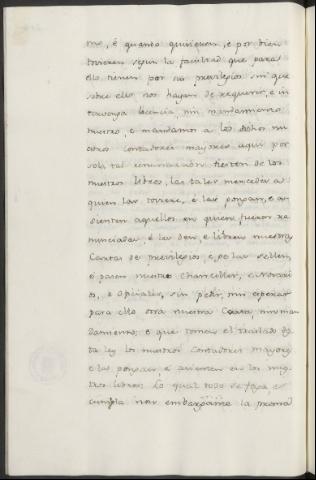 mo, é quanto quisieren, é por bien
tovieren segun la facultad que para
ello tienen por sus previlegios sin que
sobre ello nos hayan de requerir, é in
tervenga licencia, nin mandamiento
nuestro, é mandamos a los dichos nu
estros Contadores mayores aqui por
sola tal renunciacion tiesten de los
nuestros libros, las tales mercedes a
quien las toviere, é las pongan, é a
sienten aquellos en quien fueren re
nunciadas, é les den, é libren nuestras
Cartas de previlegios, é, se las sellen,
é pasen nuestro Chanciller, é notari
os, é oficiales, sin pedir, nin esperar
para ello otra nuestra Carta, nin man
damiento; é que tomen el traslado des
ta ley los nuestros Contadores mayores
é las pongan, é asienten en los nues
tros libros. Lo qual todo se faga, e
cumpla non embargante la prema